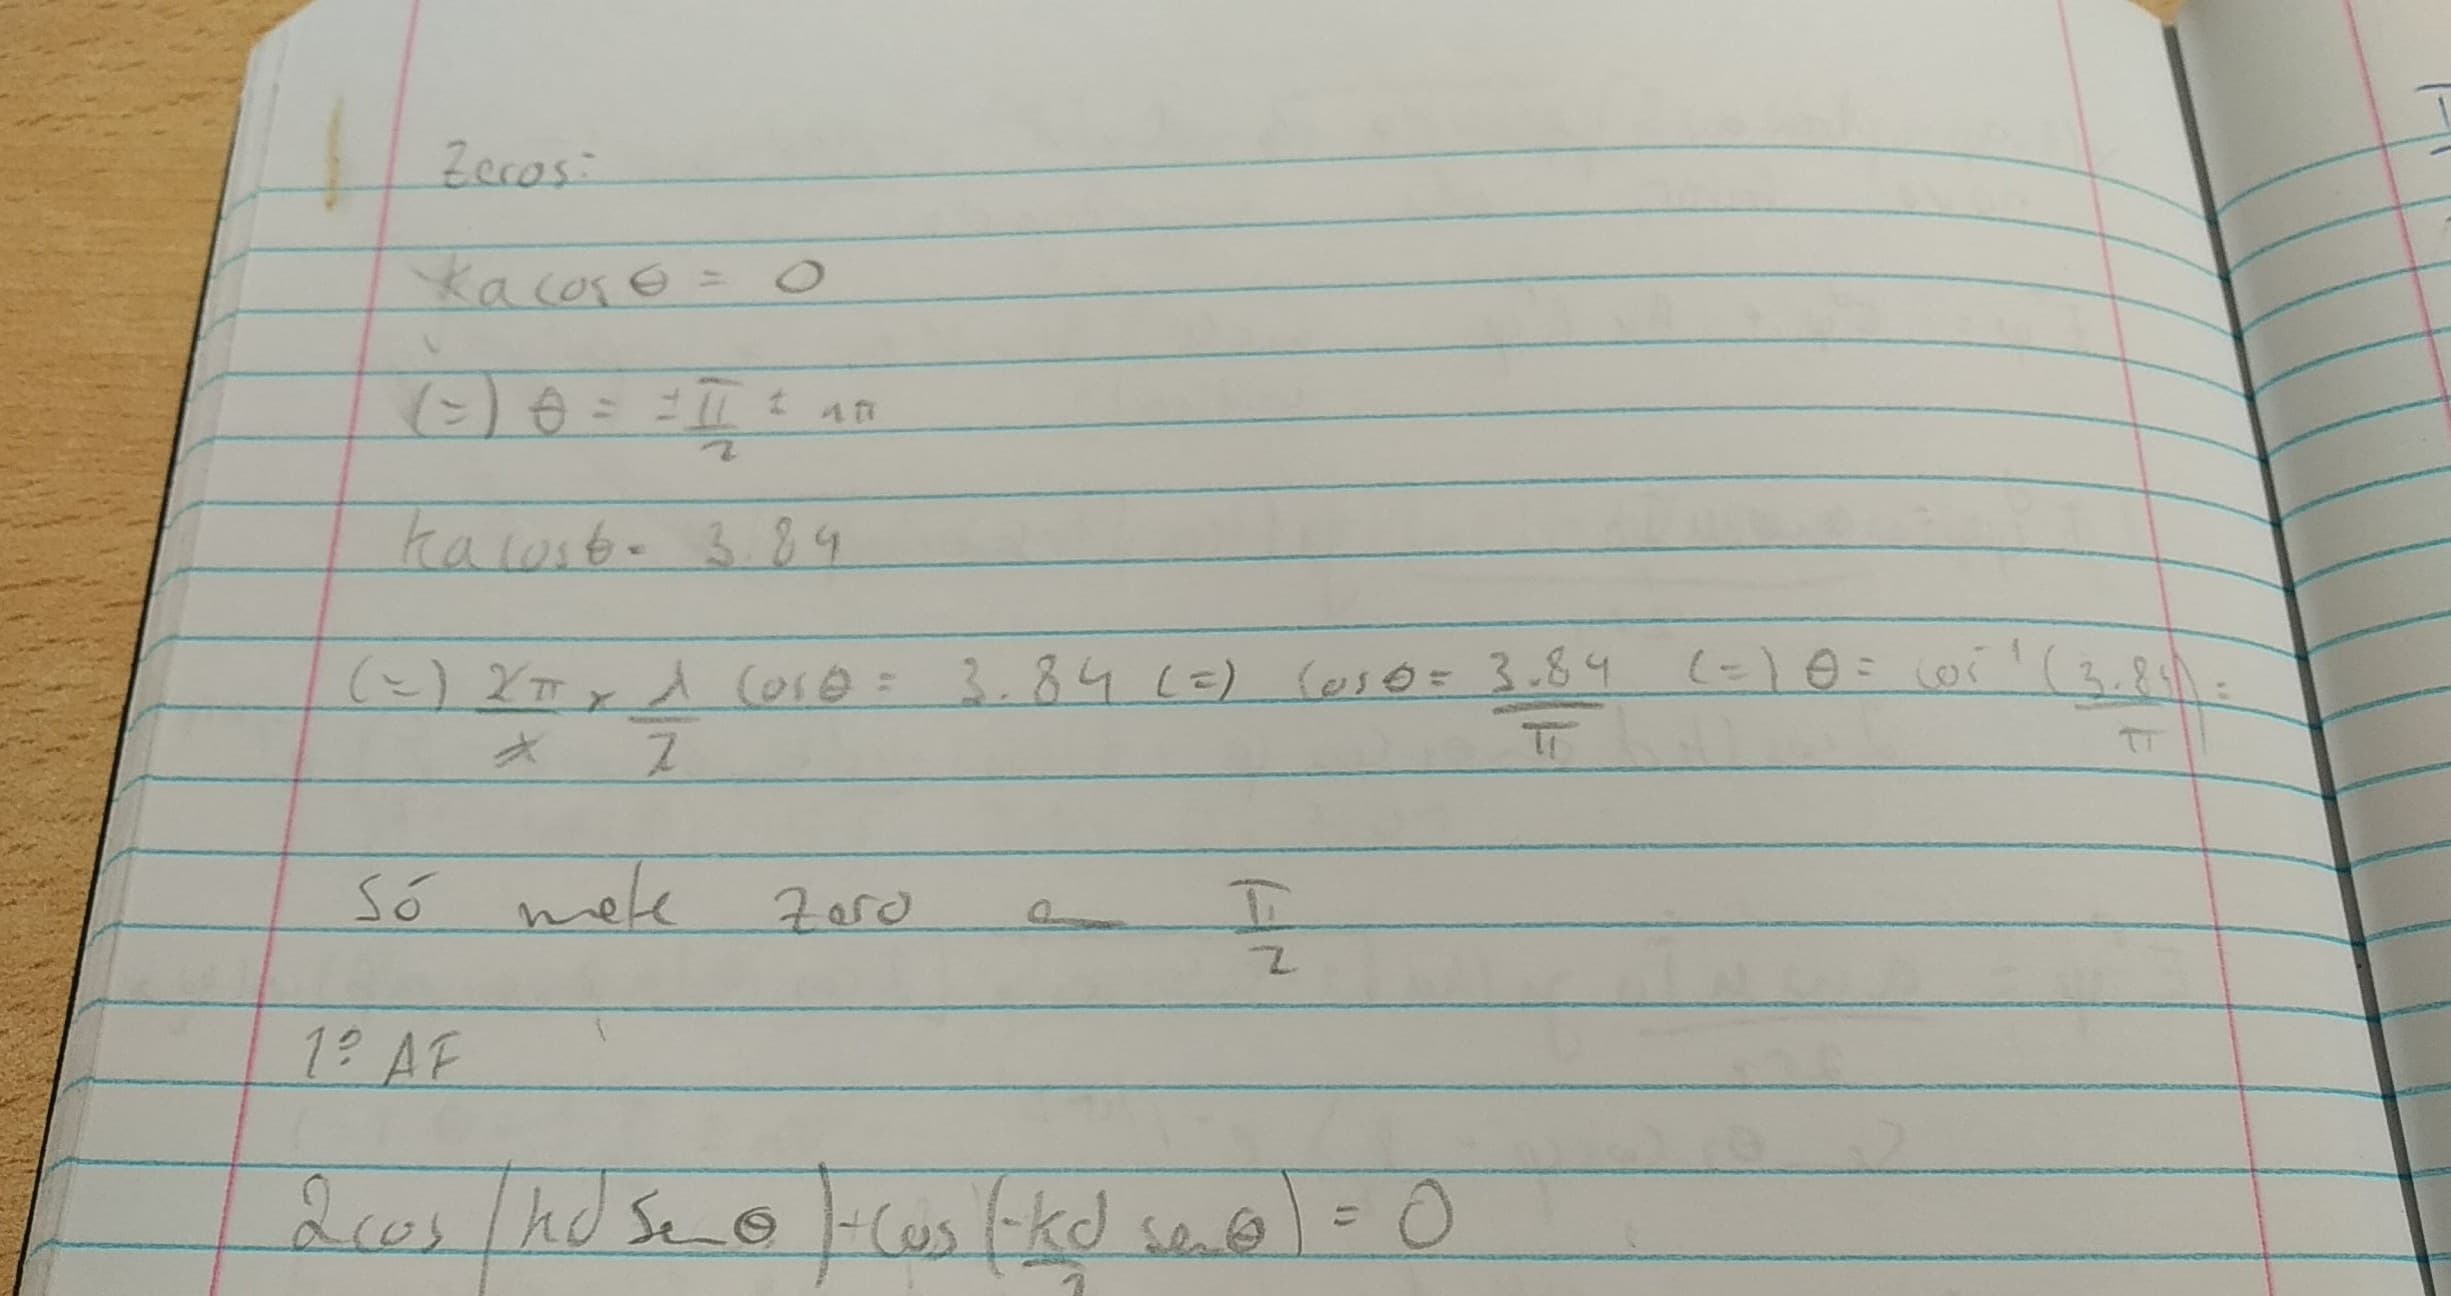 Zeros:
ka cos θ = 0
(=) θ = ± π/2 ± nπ
ka cos θ = 3.84
(=) 2π/λ × λ/2 cos θ = 3.84 (=) cos θ = 3.84/π (=) θ = cos⁻¹ (3.84/π) =
Só mete zero em π/2
1º AF
2cos (kd sen θ) + cos (-kd/2 sen θ) = 0